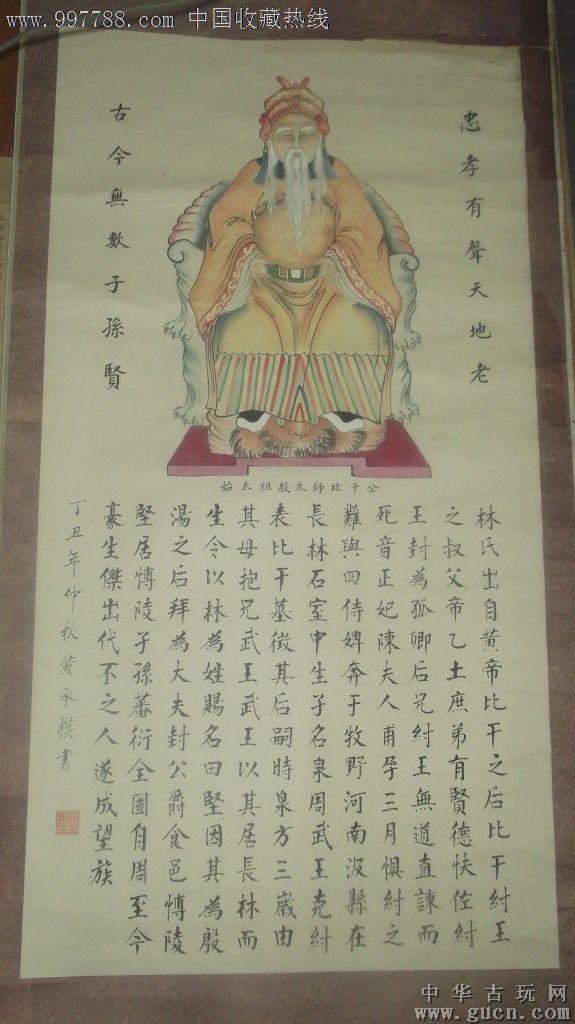 www.997788.com 中国收藏热线
忠孝有聲天地老
古今無數子孫賢
始太祖殷太師比干公
林氏出自黄帝比干之后比干紂王
之叔父帝乙土庶弟有賢德怏佐紂
王封為孤卿后兄紂王無道直諫而
死音正妃陳夫人甫孕三月惧紂之
難與四侍婢奔于牧野河南汲縣在
長林石室中生子名泉周武王克紂
表比干墓徵其后嗣時泉方三嵗由
其母抱见武王武王以其居長林而
生令以林為姓賜名曰堅因其為殷
湯之后拜為大夫封公爵食邑愽陵
堅居愽陵子孫蕃衍全國自周至今
豪生傑出代不之人遂成望族
丁丑年仲秋黄承模書
中华古玩网
www.gucn.com